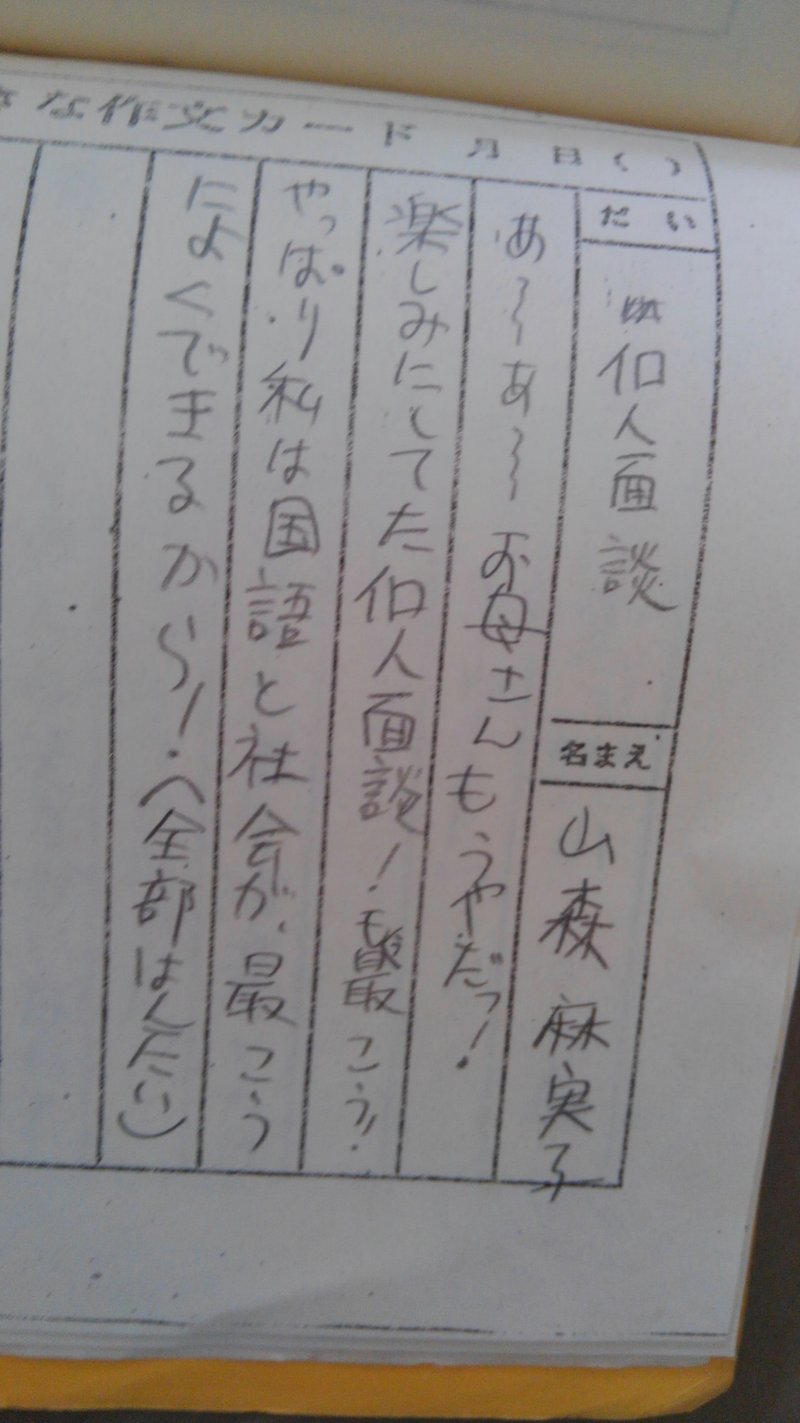 な作文カード 月 日( )
だい
個人面談
名まえ
山森麻実子
あ〜〜あ〜〜お母さんもうやだっ!
楽しみにしてた個人面談!最こう!
やっぱり私は国語と社会が、最こう
によくできるから!(全部はんたい)